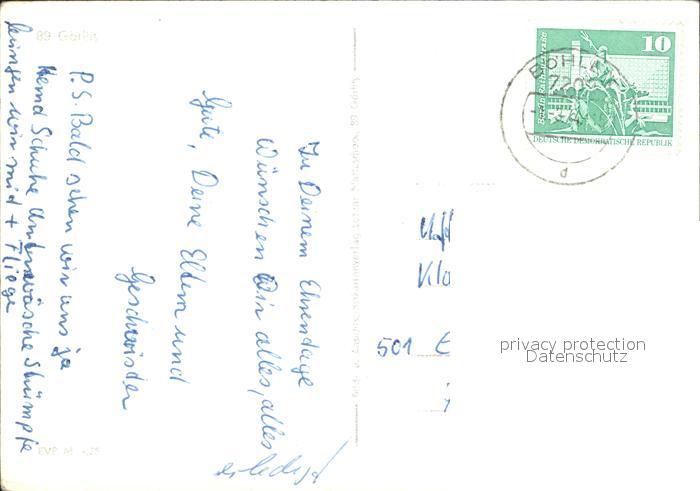 Zu Deinem Ehrentage
Wünschen Wir alles, alles
Gute, Deine Eltern und
Geschwister
P.S. Bald sehen wir uns ja
Hemd Schuhe Unterwäsche Strümpfe
bringen wir mit + Fliege
erledigt
89 Görlitz
EVP M -,25
10
DEUTSCHE DEMOKRATISCHE REPUBLIK
BÖHLEN
7202
d
501 E
privacy protection
Datenschutz